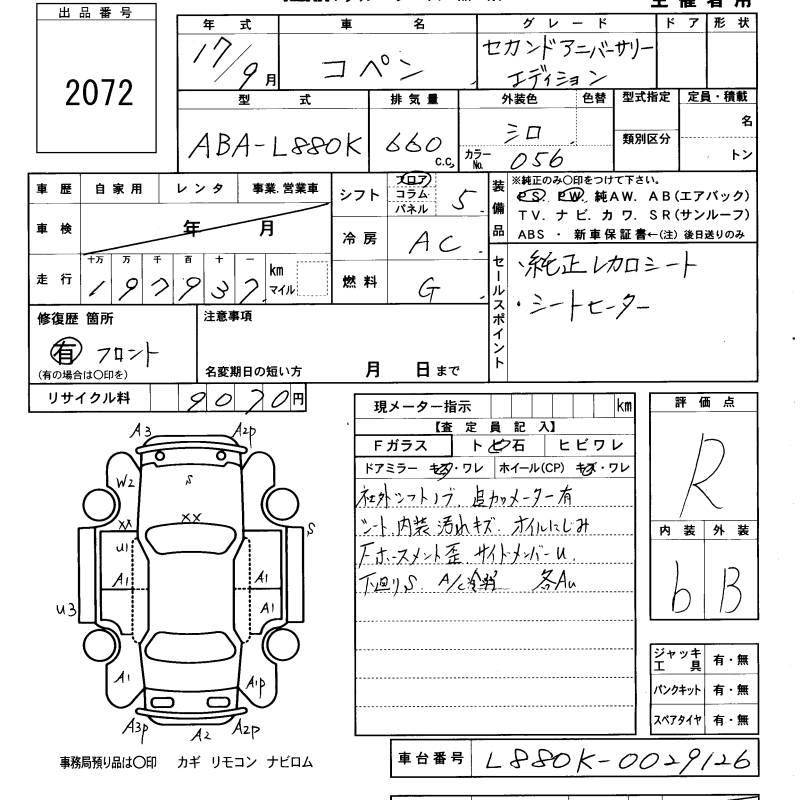 主催者用
出品番号
2072
年式 車名 グレード ドア 形状
17/9月 コペン セカンドアニバーサリー
エディション
型式 排気量 外装色 色替 型式指定 定員・積載
ABA-L880K 660 c.c. シロ 類別区分 名
カラーNo. 056 トン
車歴 自家用 レンタ 事業.営業車
車検 年 月
走行 十万 万 千 百 十 一 km マイル
197937
シフト フロア コラム パネル 5
冷房 AC
燃料 G
装備品
※純正のみ○印をつけて下さい。
PS. PW. 純AW. AB(エアバック)
TV. ナビ. カワ. SR(サンルーフ)
ABS ・ 新車保証書←(注) 後日送りのみ
セールスポイント
・純正レカロシート
・シートヒーター
修復歴 箇所
有 フロント
(有の場合は○印を)
注意事項
名変期日の短い方 月 日まで
リサイクル料 9070円
現メーター指示 km
【査定員記入】
Fガラス トビ石 ヒビワレ
ドアミラー キズ・ワレ ホイール(CP) キズ・ワレ
社外シフトノブ 追加メーター有
シート、内装汚れキズ オイルにじみ
Fホースメント歪 サイドメンバーU.
下廻りS A/C 各AU
評価点
R
内装 外装
b B
ジャッキ
工具 有・無
パンクキット 有・無
スペアタイヤ 有・無
車台番号 L880K-0029126
A3 A2P
W2 S
XX XX S
U1
A1 A1
U3 A1
A1 A1P
A3P A2 A2P
事務局預り品は○印 カギ リモコン ナビロム